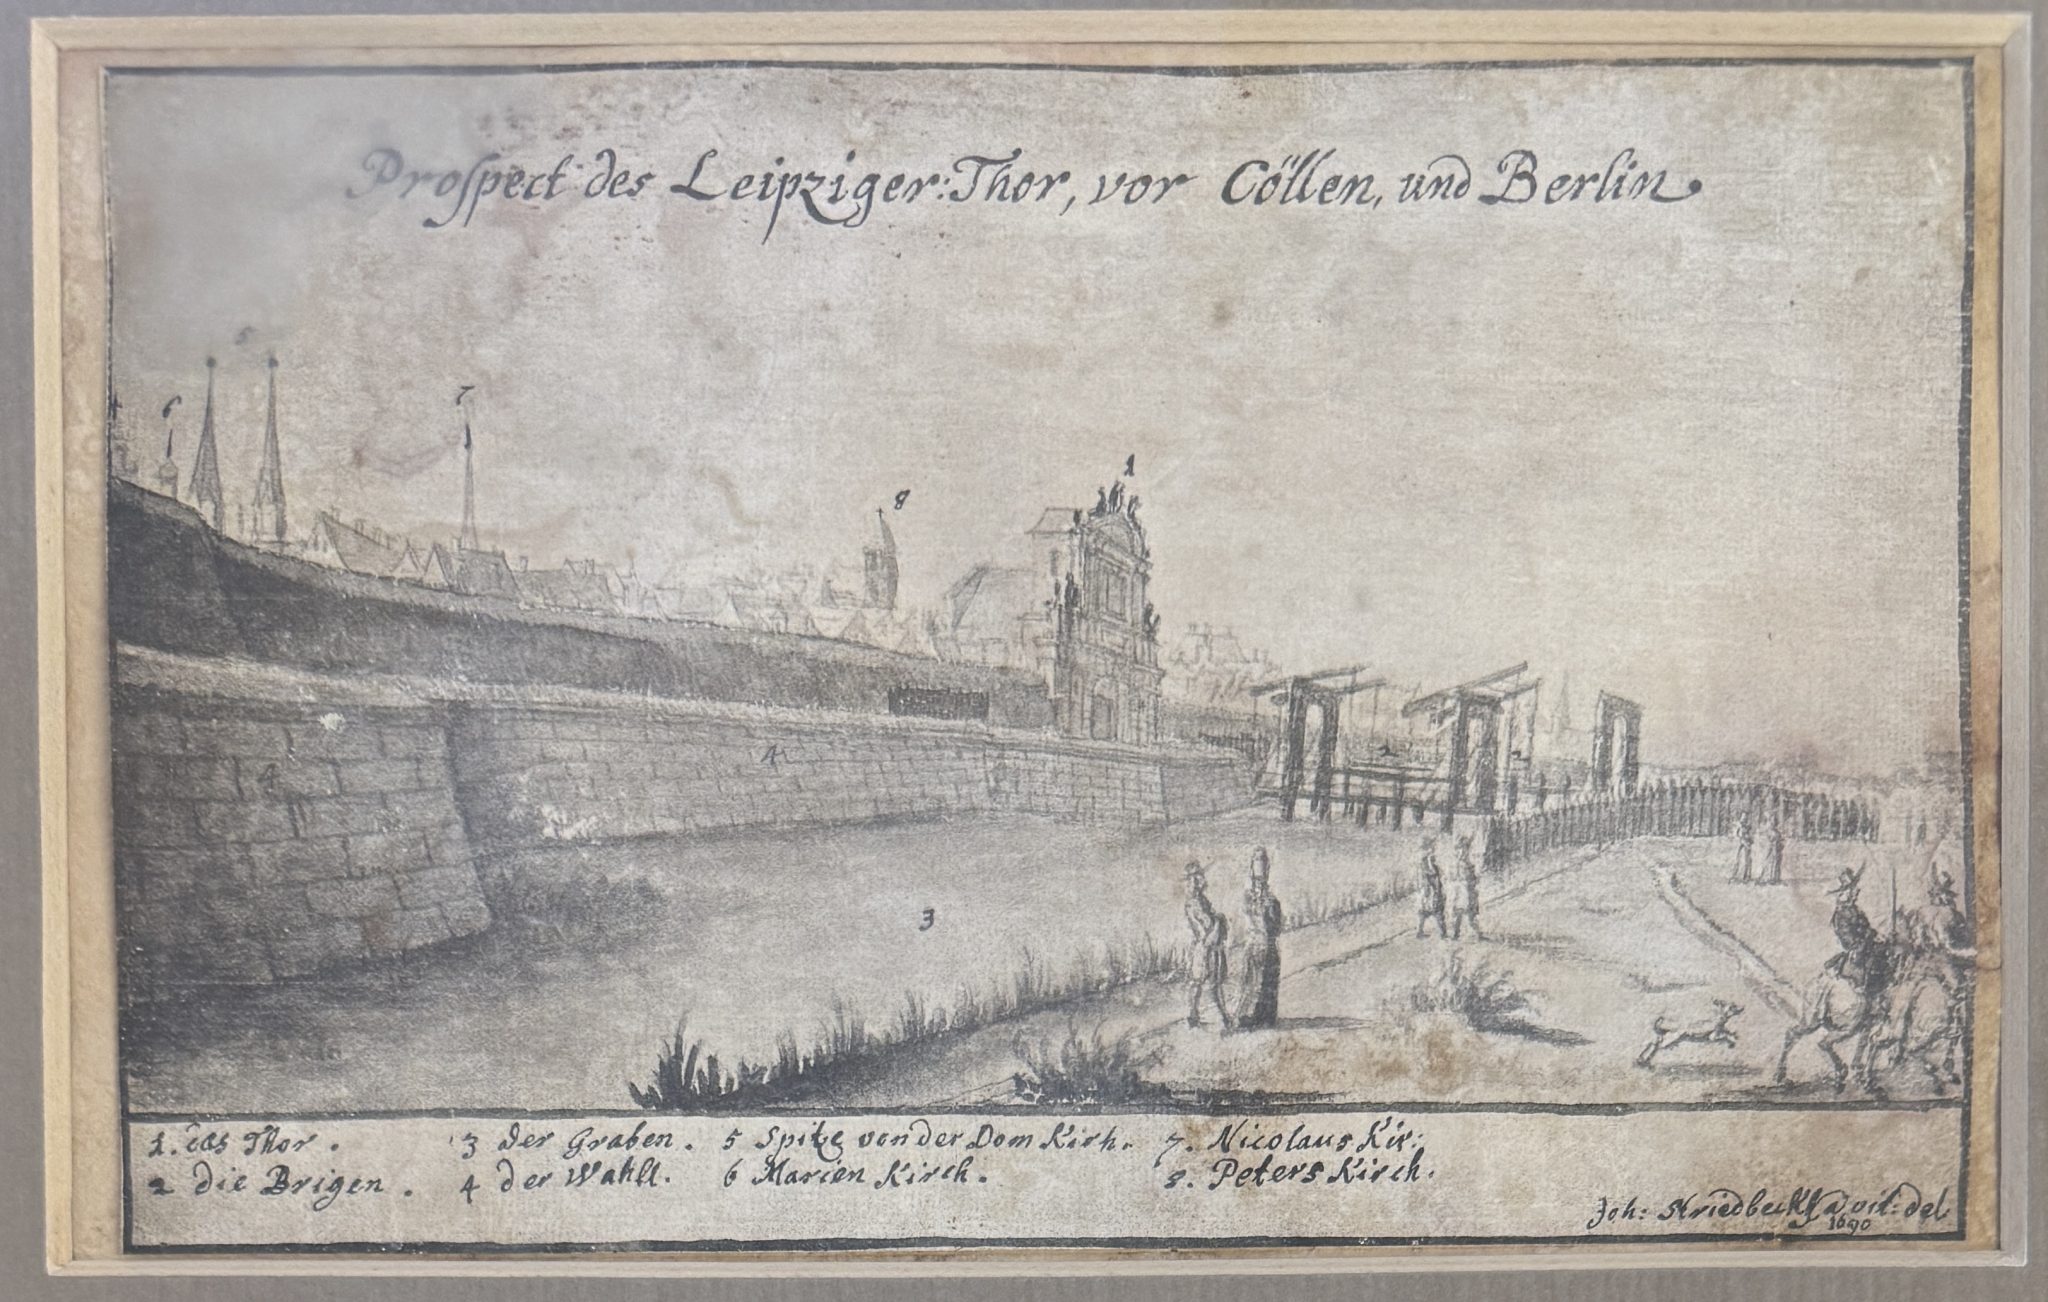 Prospect des Leipziger: Thor, vor Cöllen, und Berlin.
5
6
7
8
1
4
4
2
2
3
1. das Thor.
2 die Brigen.
3 der Graben.
4 der Wahll.
5 Spitze von der Dom Kirh.
6 Marien Kirch.
7. Nicolaus Kir:
8. Peters Kirch.
Joh: Stridbeck del
1690